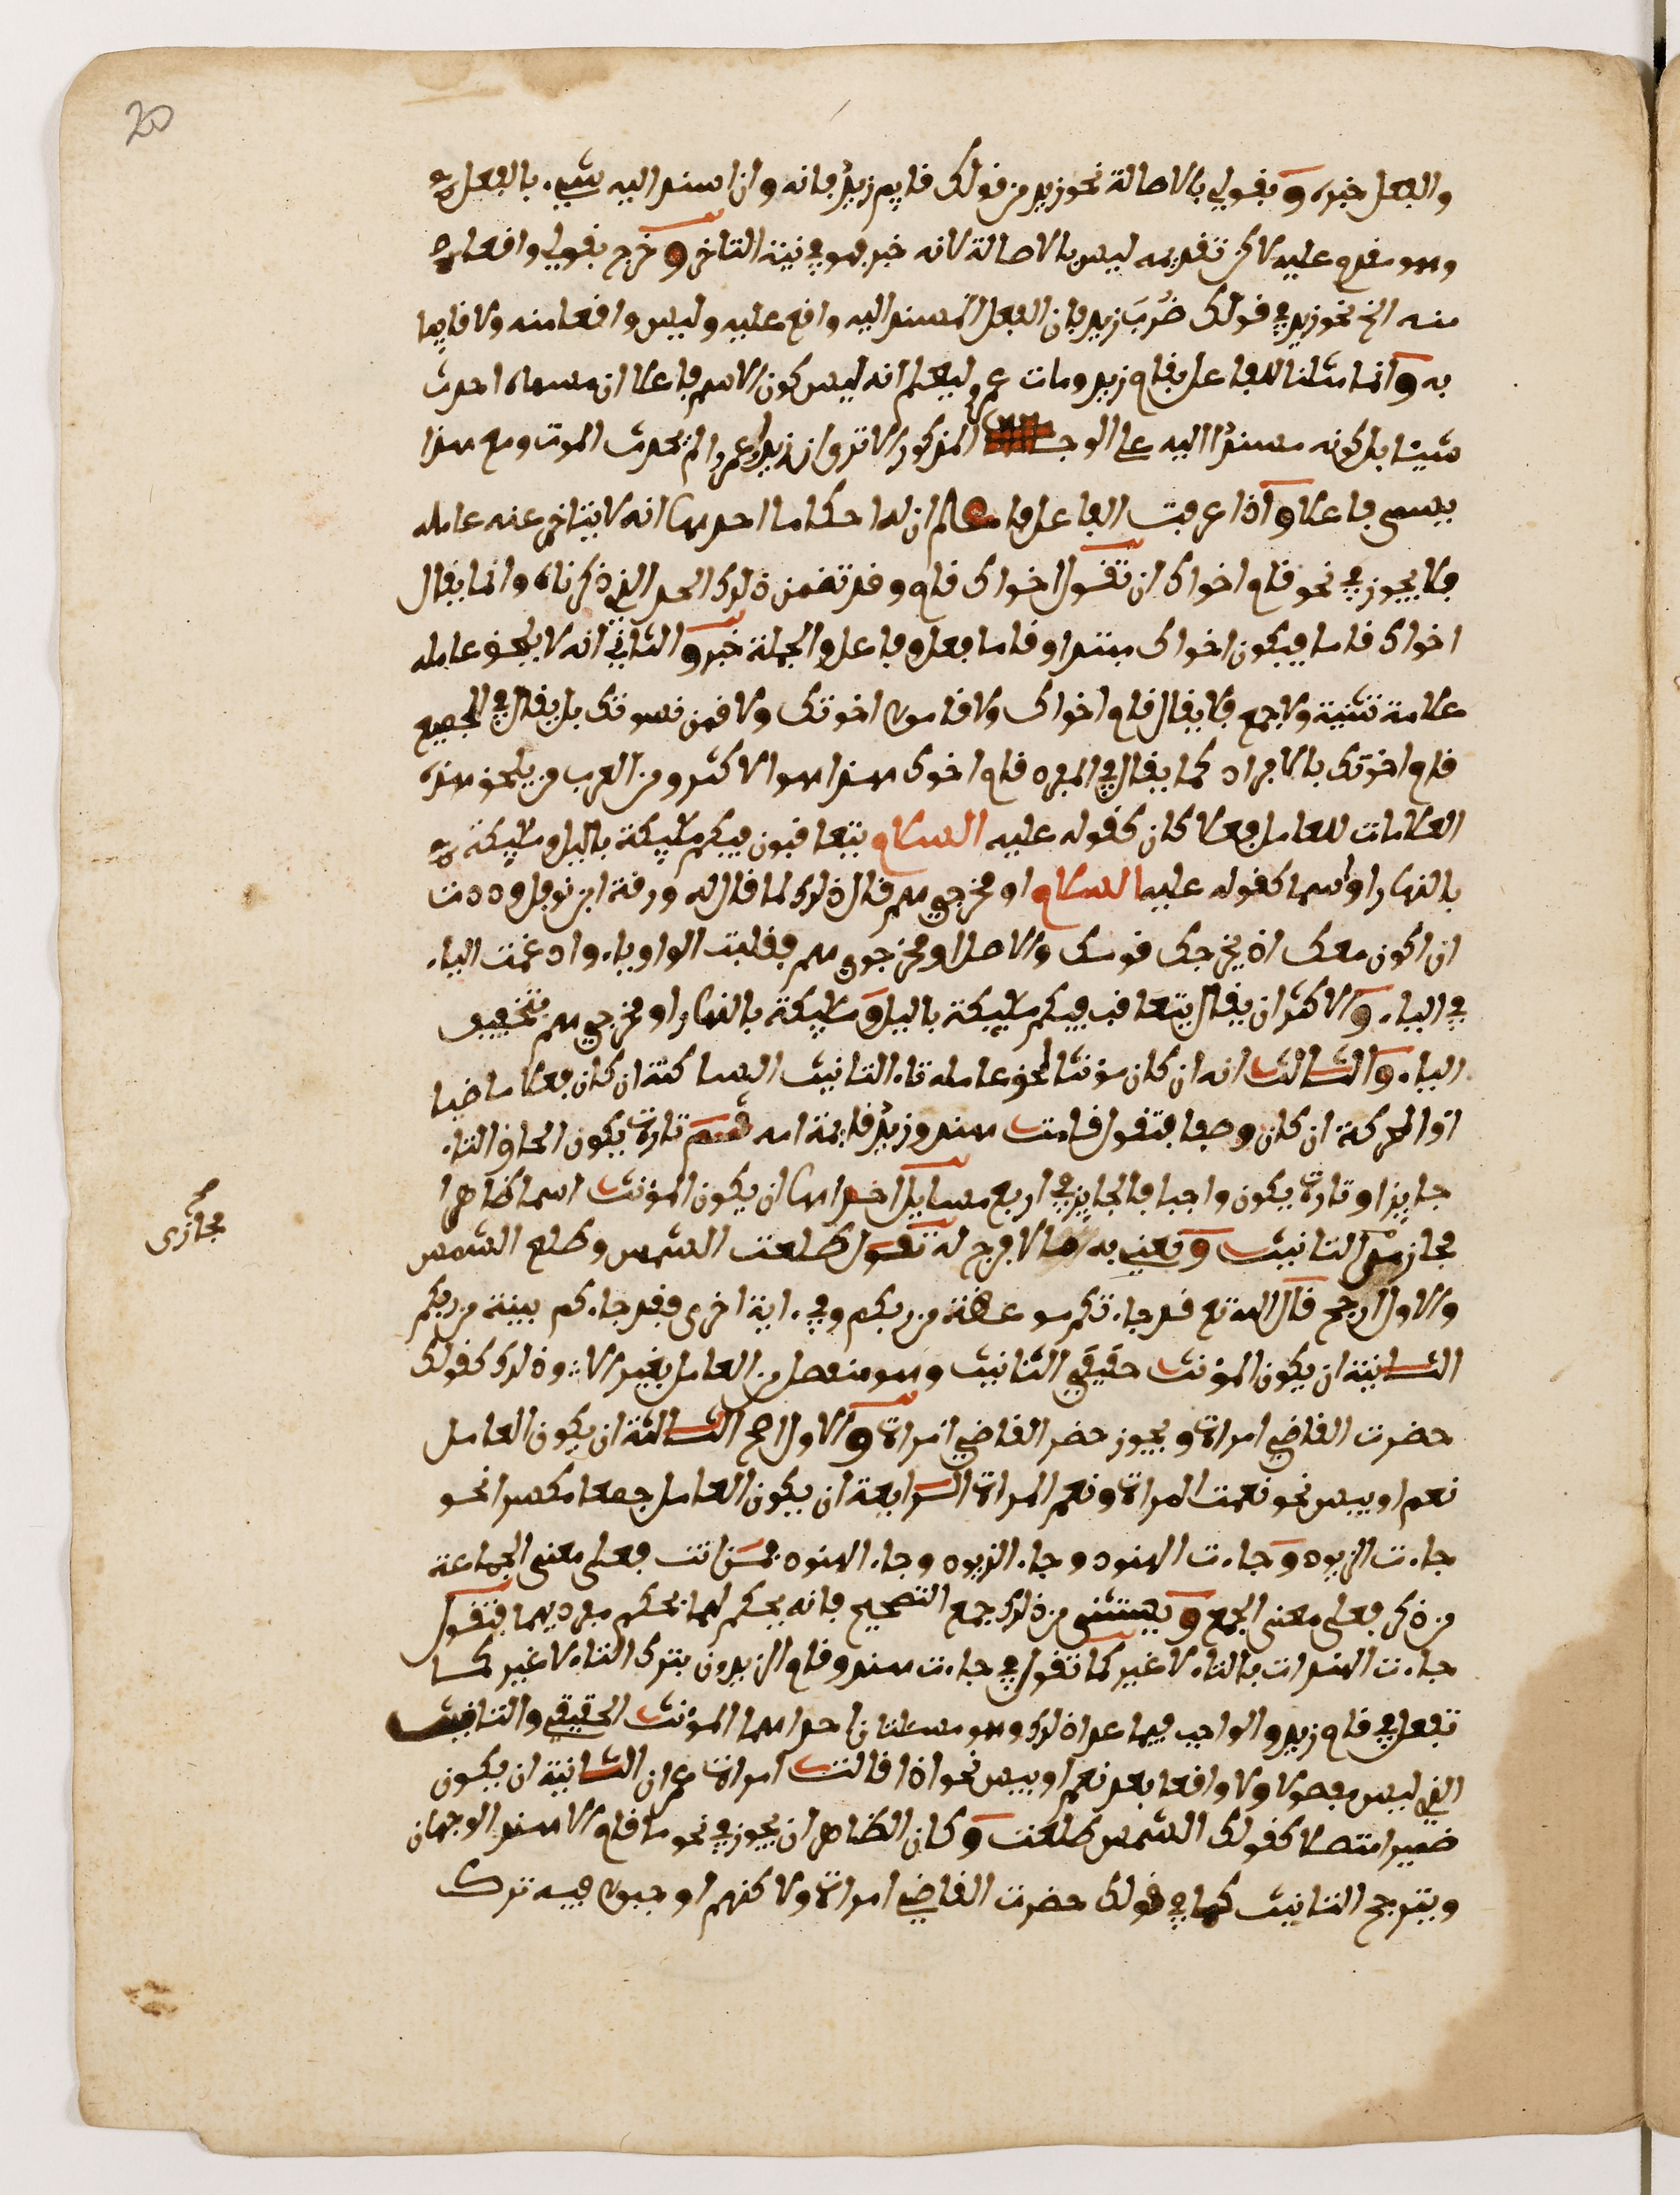 20
والفعل خبره وبقولي بالاصالة نحو زيد من قولك قايم زيدٌ فانه وان اسند اليه شيء بالفعل
وهو مقدم عليه لاكن تقديمه ليس بالاصالة لانه خبر فهو في نية التاخر وخرج بقولي واقعا
منه الخ نحو زيد في قولك ضُرِبَ زيد فان الفعل المسند اليه واقع عليه وليس واقعا منه ولا قايما
به وانما مثلنا للفاعل بقام زيد ومات عمرو ليعلم انه ليس كون الاسم فاعلا ان مسماه احدث
شيئا بل كونه مسندًا اليه على الوجه المذكور الا ترى ان زيدا عمرا لم يحدث الموت ومع هذا
يسمى فاعلا واذا عرفت الفاعل فاعلم ان له احكاما احدها انه لا يتاخر عنه عامله
فلا يجوز في نحو قام اخواك ان تقول اخواك قام وقد تضمن ذلك الحد الذي ذكرناه وانما يقال
اخواك قاما فيكون اخواك مبتدا وقاما فعل وفاعل والجملة خبر والثاني انه لا يلحق عامله
علامة تثنية ولا جمع فلا يقال قاما اخواك ولا قاموا اخوتك ولا قمن نسوتك بل يقال في الجميع
قام اخوتك بالافراد كما يقال في المفرد قام اخوك هذا هو الاكثر ومن العرب من يلحق هذه
العلامات للعامل فعلا كان كقوله عليه السلام يتعاقبون فيكم مليكة بالليل ومليكة
بالنهار او اسما كقوله عليه السلام او مخرجي هم قال ذلك لما قال له ورقة ابن نوفل وددت
ان اكون معك اذ يخرجك قومك والاصل او مخرجوي هم فقلبت الواو ياء وادغمت الياء
في الياء والاكثر ان يقال يتعاقب فيكم مليكة بالليل ومليكة بالنهار او مخرجي هم بتخفيف
الياء والثالث انه ان كان مونثا لحق عامله تاء التانيث الساكنة ان كان فعلا ماضيا
او المحركة ان كان وصفا فتقول قامت هند وزيدٌ قايمة امه ثم تارة يكون الحاق التاء
جايزا وتارة يكون واجبا فالجايز في اربع مسايل احداها ان يكون المونث اسما ظاهرا
مجازي التانيث ونعني به ما لا فرج له تقول طلعت الشمس وطلع الشمس
صح
مجازي
والاول ارجح قال الله تع قد جاءتكم موعظة من ربكم وفي اية اخرى فقد جاءكم بينة من ربكم
الثانية ان يكون المونث حقيقي التانيث وهو منفصل من العامل بغير الا وذلك كقولك
حضرت القاضي امراة ويجوز حضر القاضي امراة والاول اصح الثالثة ان يكون العامل
نعم او بيس نحو نعمت المراة ونعم المراة الرابعة ان يكون العامل جمعا مكسرا نحو
جاءت الزيود وجاءت الهنود وجاء الزيود وجاء الهنود فمن انث فعلى معنى الجماعة
ومن ذكر فعلى معنى الجمع ويستثنى من ذلك جمع التصحيح فانه يحكم لهما بحكم مفرديهما فتقول
جاءت الهندات بالتاء لا غير كما تقول في جاءت هند وقام الزيدون بترك التاء لا غير كما
تفعل في قام زيد والواجب فيما عدا ذلك وهو مسئلتان احداهما المونث الحقيقي والتانيث
الذي ليس مفصولا ولا واقعا بعد نعم او بيس نحو اذ قالت امراة عمران الثانية ان يكون
ضميرا متصلا كقولك الشمس طلعت وكان الظاهر ان يجوز في نحو ما قام الا هند الوجهان
ويترجح التانيث كما في قولك حضرت القاضي امراة ولاكنهم اوجبوا فيه ترك